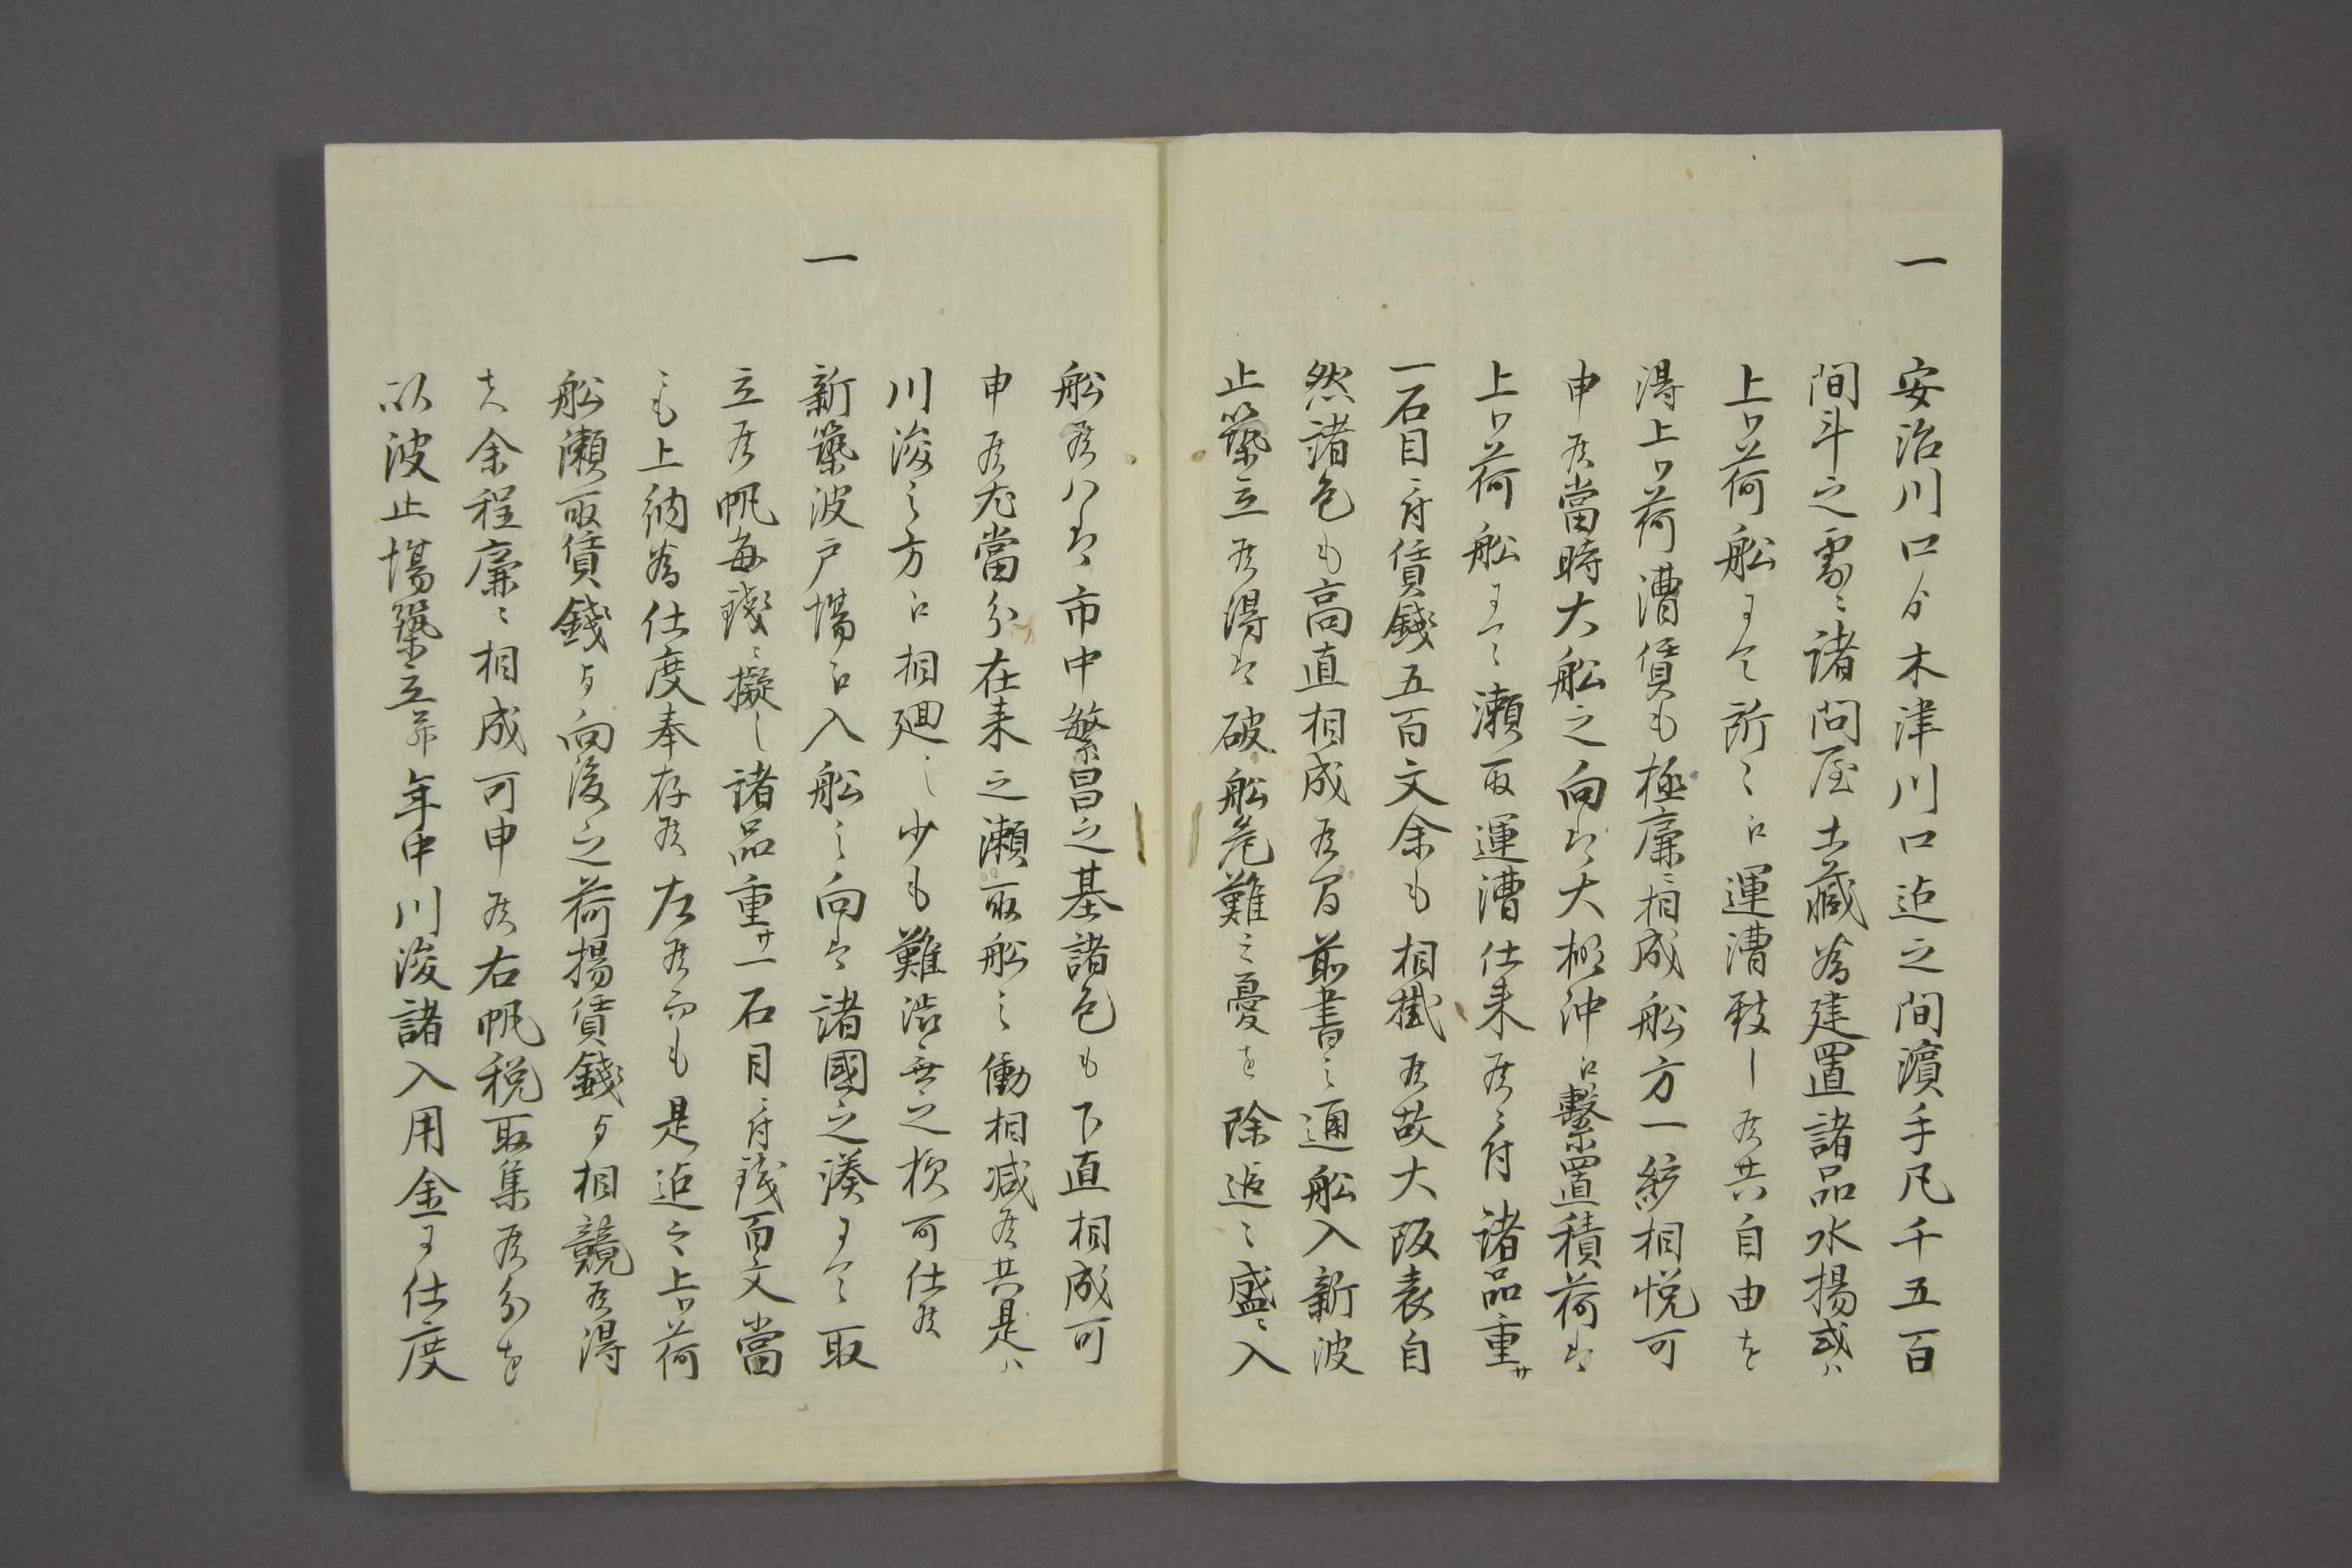 一 安治川口ゟ木津川口迠之間濵手凡千五百
間斗之處ニ諸問屋土藏為建置諸品水揚或ハ
上ケ荷舩ヲ以テ所々江運漕致し候共自由を
得上ケ荷漕賃も極廉ニ相成舩方一統相悦可
申候當時大舩之向者大概沖江繋置積荷者
上ケ荷舩ヲ以テ瀬取運漕仕来候ニ付諸品重サ
一石目ニ付賃錢五百文余も相掛候故大阪表自
然諸色も高直相成候間前書之通舩入新波
止築立候得者破舩危難之憂を除追々盛ニ入
舩候ハヽ市中繁昌之基諸色も下直相成可
申候尤當分在来之瀬取舩之働相減候共是ハ
川浚之方江相廻し少も難渋無之様可仕候
一 新築波戸場江入舩之向者諸國之湊ヲ以テ取
立候帆毎錢ニ擬し諸品重サ一石目ニ付錢百文當
ニも上納為仕度奉存候左候而も是迠之上ケ荷
舩瀬取賃錢与向後之荷揚賃錢与相競候得
者余程廉ニ相成可申候右帆税取集候分を
以波止場築立并年中川浚諸入用金ヲ仕度